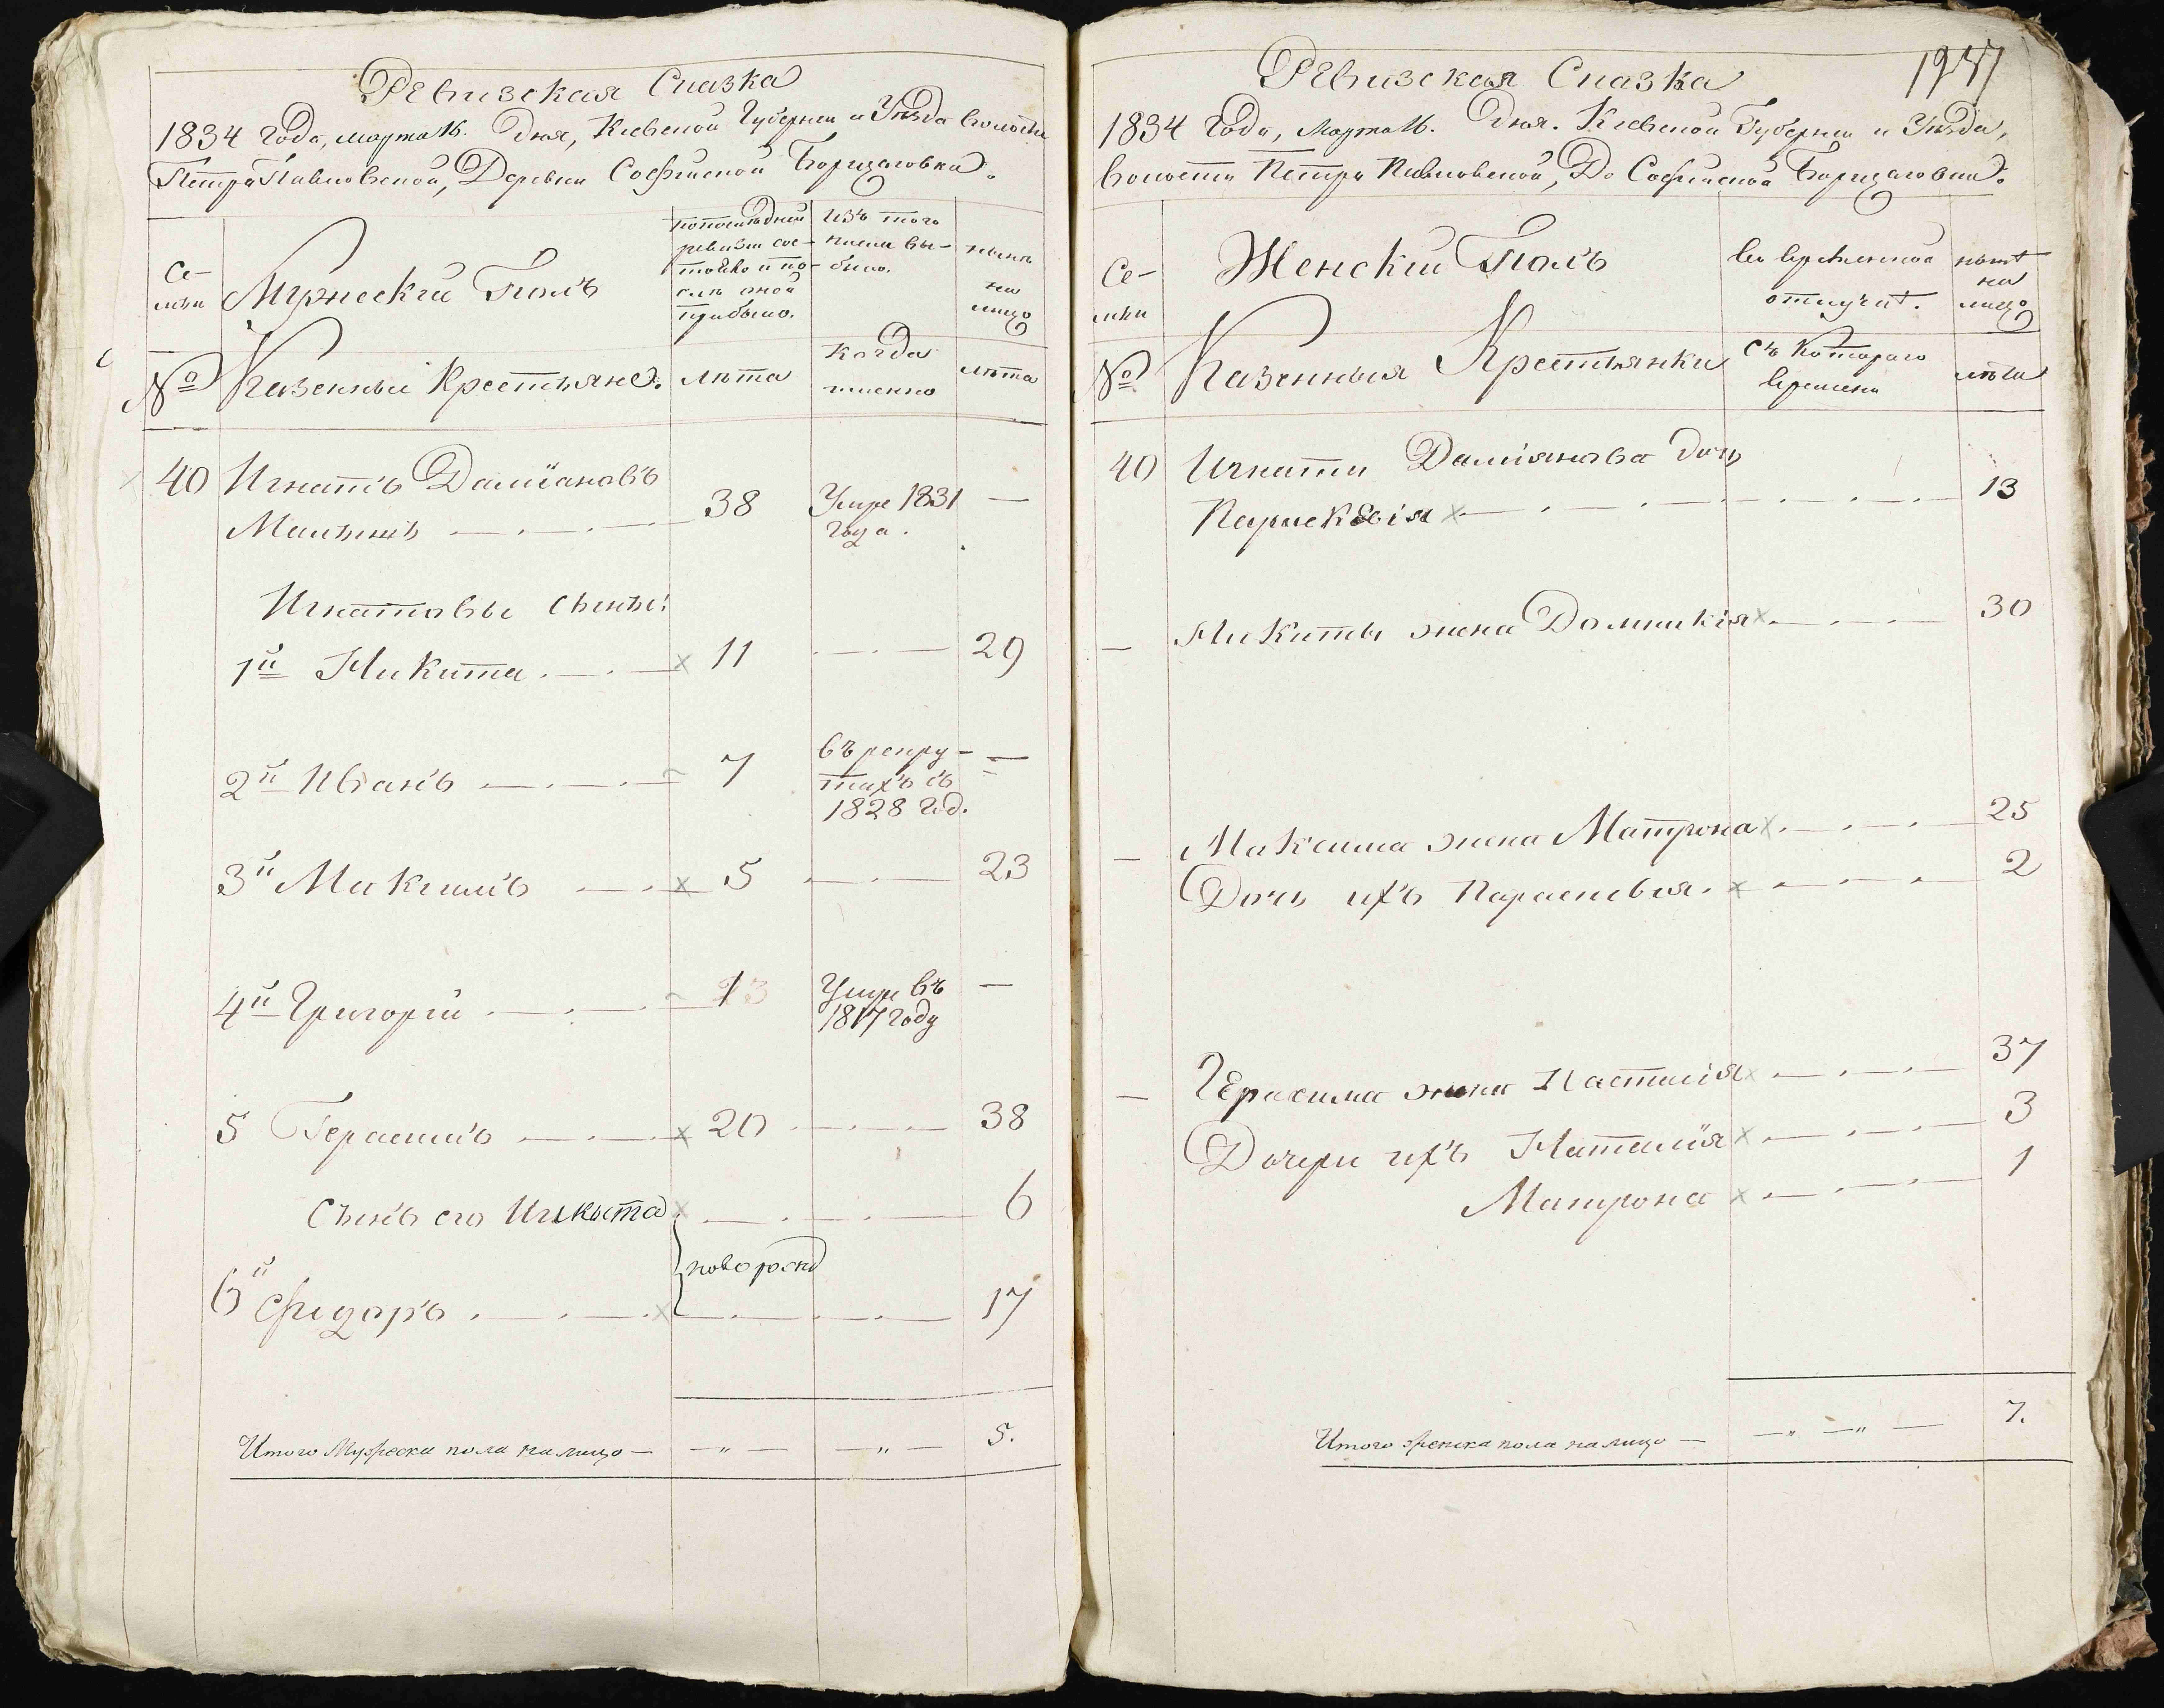 Ревизская Сказка
1834 года, марта 16. Дня, Киевской Губернии и Уѣзда волости
Петро Павловской, Деревни Софийской Борщаговки.
Се-
мьи
Мужеский Полъ
по последней
ревизии сос-
тояло и по-
слѣ оной
прибыло.
Изъ того
числа вы-
было.
нынѣ
на
лицо
№ Казенныи Крестьяне. лѣта
когда
именно
лѣта
40 Игнатъ Даміановъ
38 Умре 1831 —
года.
Игнатовы сыны:
1й Никита 11 29
2й Иванъ 7 въ рекру- —
тахъ съ
1828 год.
3й Максимъ 5 23
4й Григорій 13 Умре въ —
1817 году
5 Герасимъ 20 38
Сынъ его Никыта 6
новорожд
6й Фидоръ 17
Итого Мужеска пола на лицо — — „ — — „ — 5.
Ревизская Сказка
1834 года, марта 16. Дня. Киевской Губернии и Уѣзда,
волости Петро Павловской, Д. Софийской Борщаговки.
Се-
мьи
Женский Полъ
во временной
отлучкѣ.
нынѣ
на
лицо
№ Казенныя Крестьянки
съ котораго
времени
лѣта
40 Игната Даміанова дочь
Параскевія 13
— Никиты жена Домникія 30
— Максима жена Матрона 25
Дочь ихъ Параскевия. 2
— Герасима жена Настасія 37
Дочери ихъ Наталія 3
Матрона 1
Итого женска пола на лицо — — „ — „ — 7.